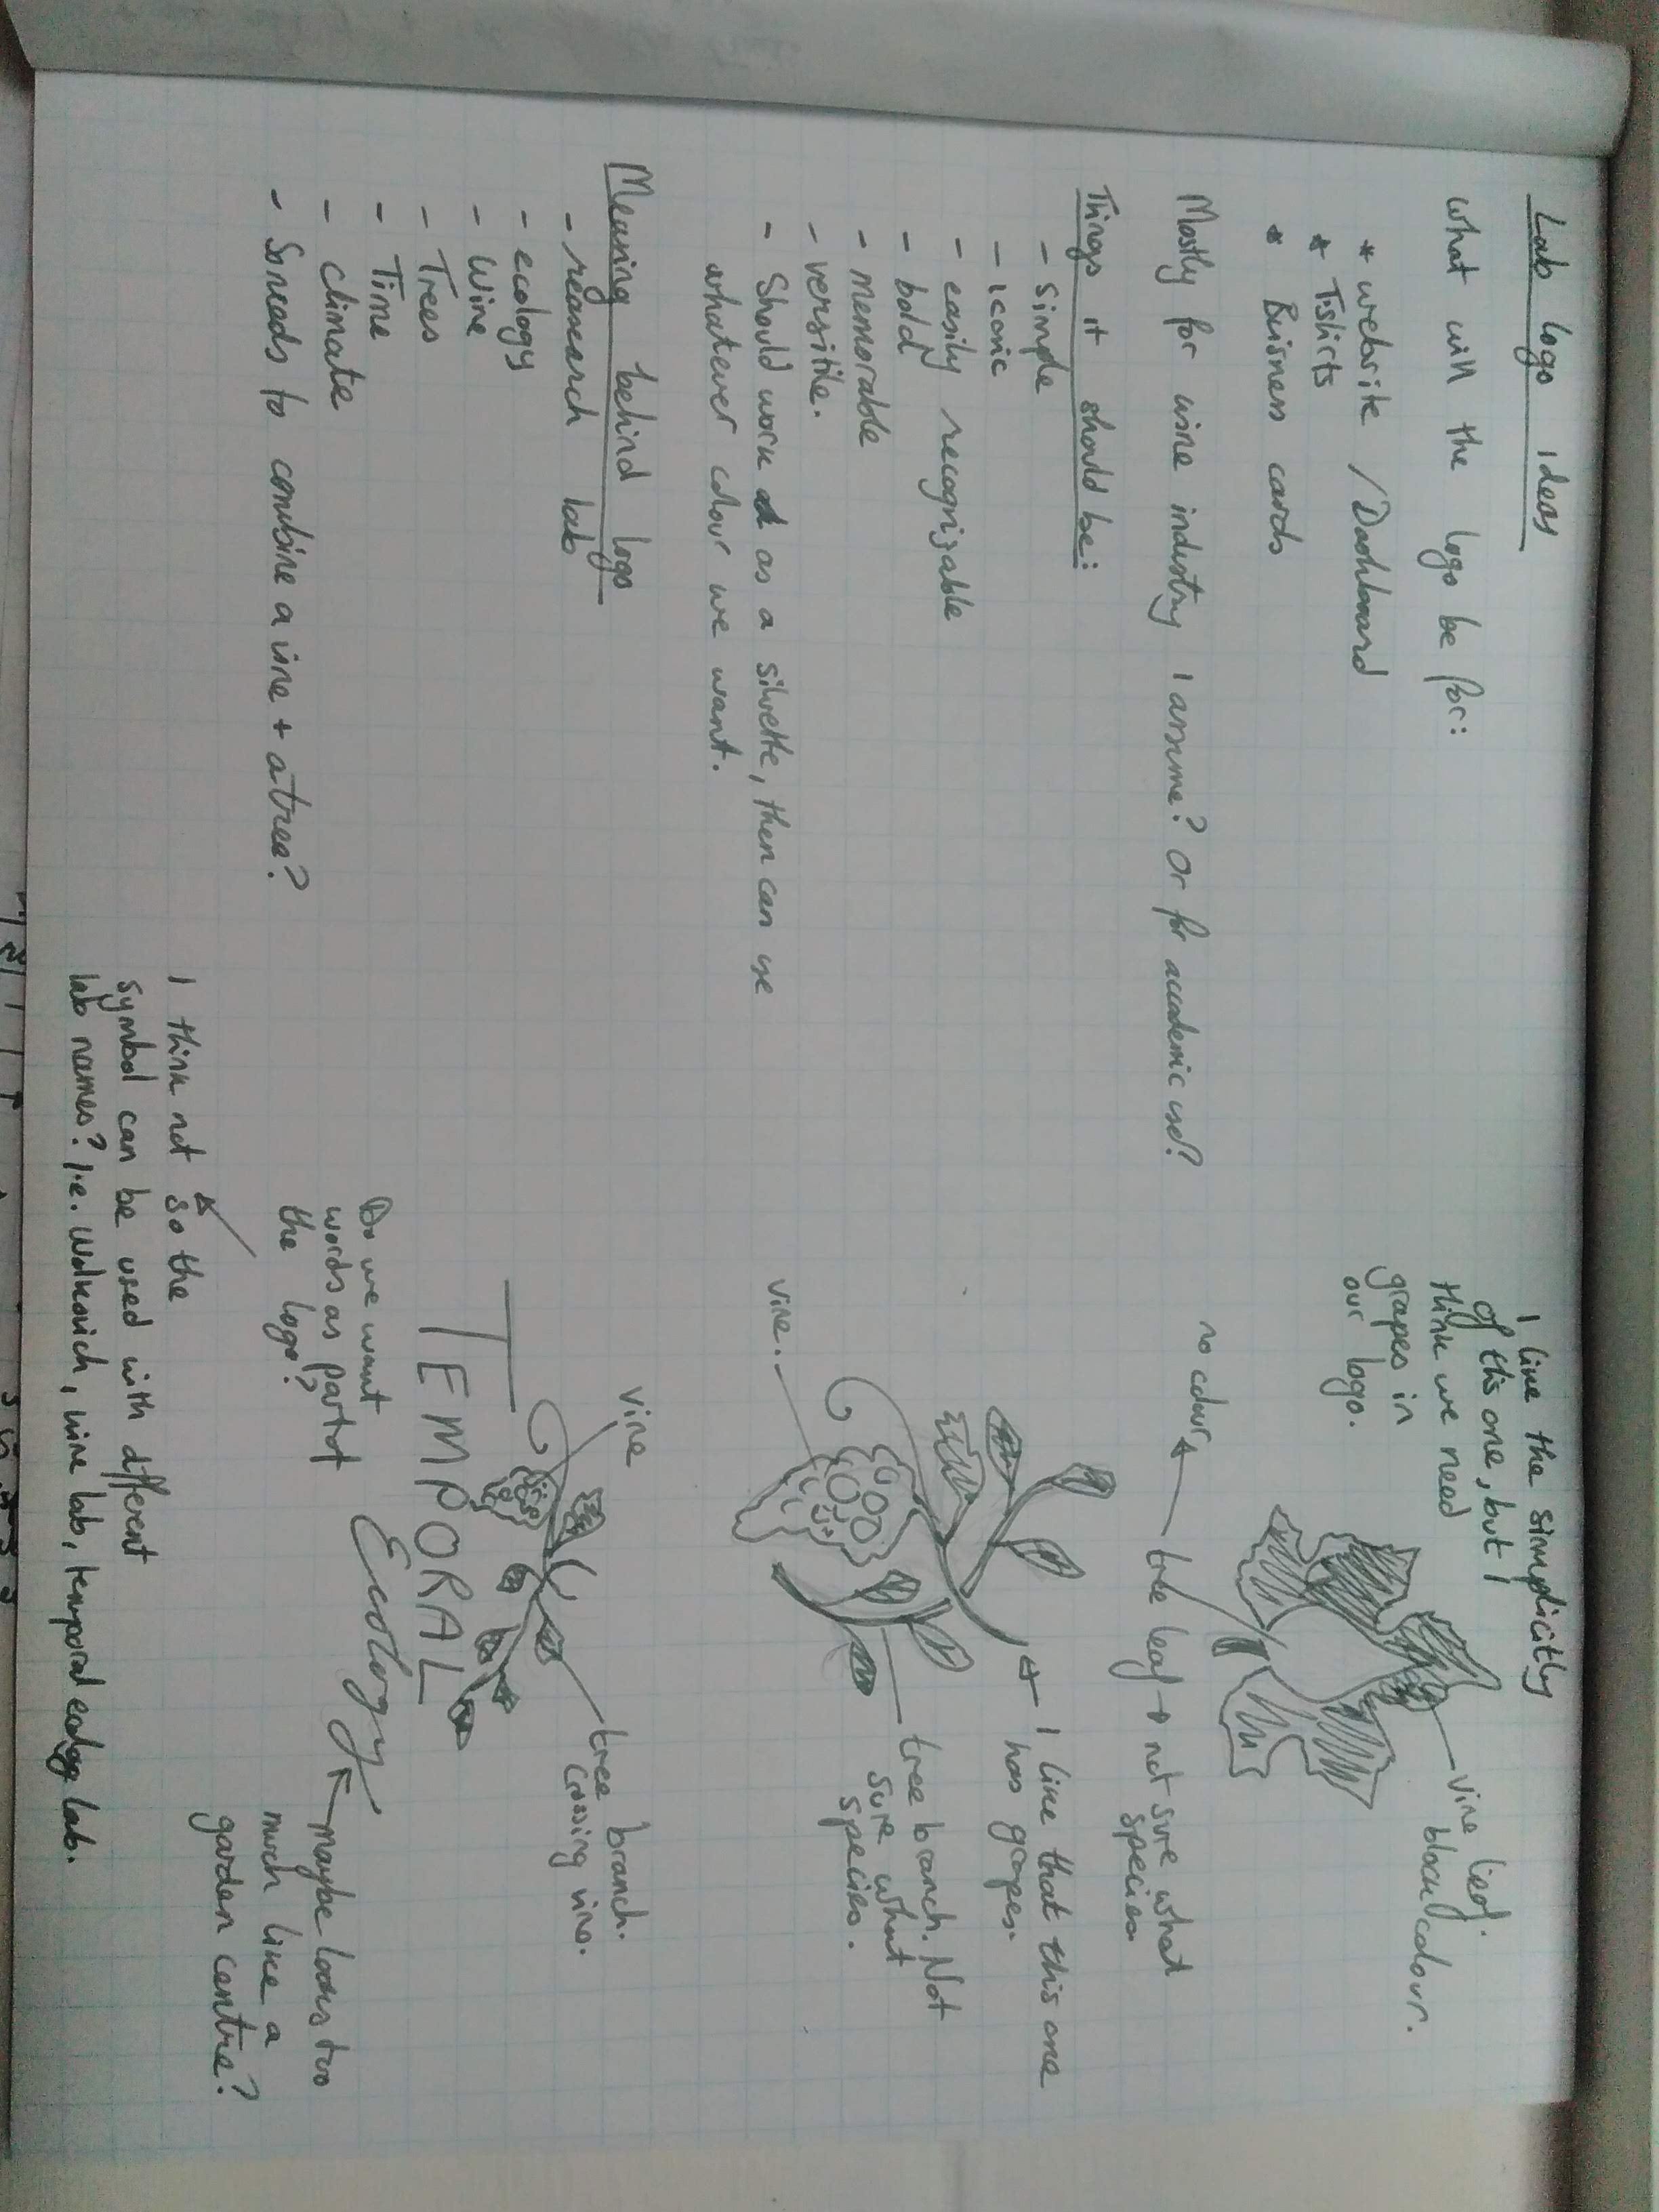 Lab logo ideas
What will the logo be for:
* website / Dashboard
* Tshirts
* Buisness cards
Mostly for wine industry I assume? Or for academic use?
Things it should be:
- simple
- iconic
- easily recognisable
- bold
- memorable
- versitile.
- Should work as a silvette, then can use
whatever colour we want.
Meaning behind logo
- research lab
- ecology
- Wine
- Trees
- Time
- climate
- So needs to combine a vine + a tree?
I like the simplicity
of this one, but I
think we need
grapes in
our logo.
vine leaf.
block colour.
no colour
tree leaf → not sure what
species.
I like that this one
has grapes.
tree branch. Not
sure what
species.
vine.
vine
tree branch.
crossing vine.
TEMPORAL
Ecology
maybe looks too
much like a
garden centre?
Do we want
words as part of
the logo?
I think not so the
symbol can be used with different
lab names? I.e. Wolkovich, vine lab, temporal ecology lab.